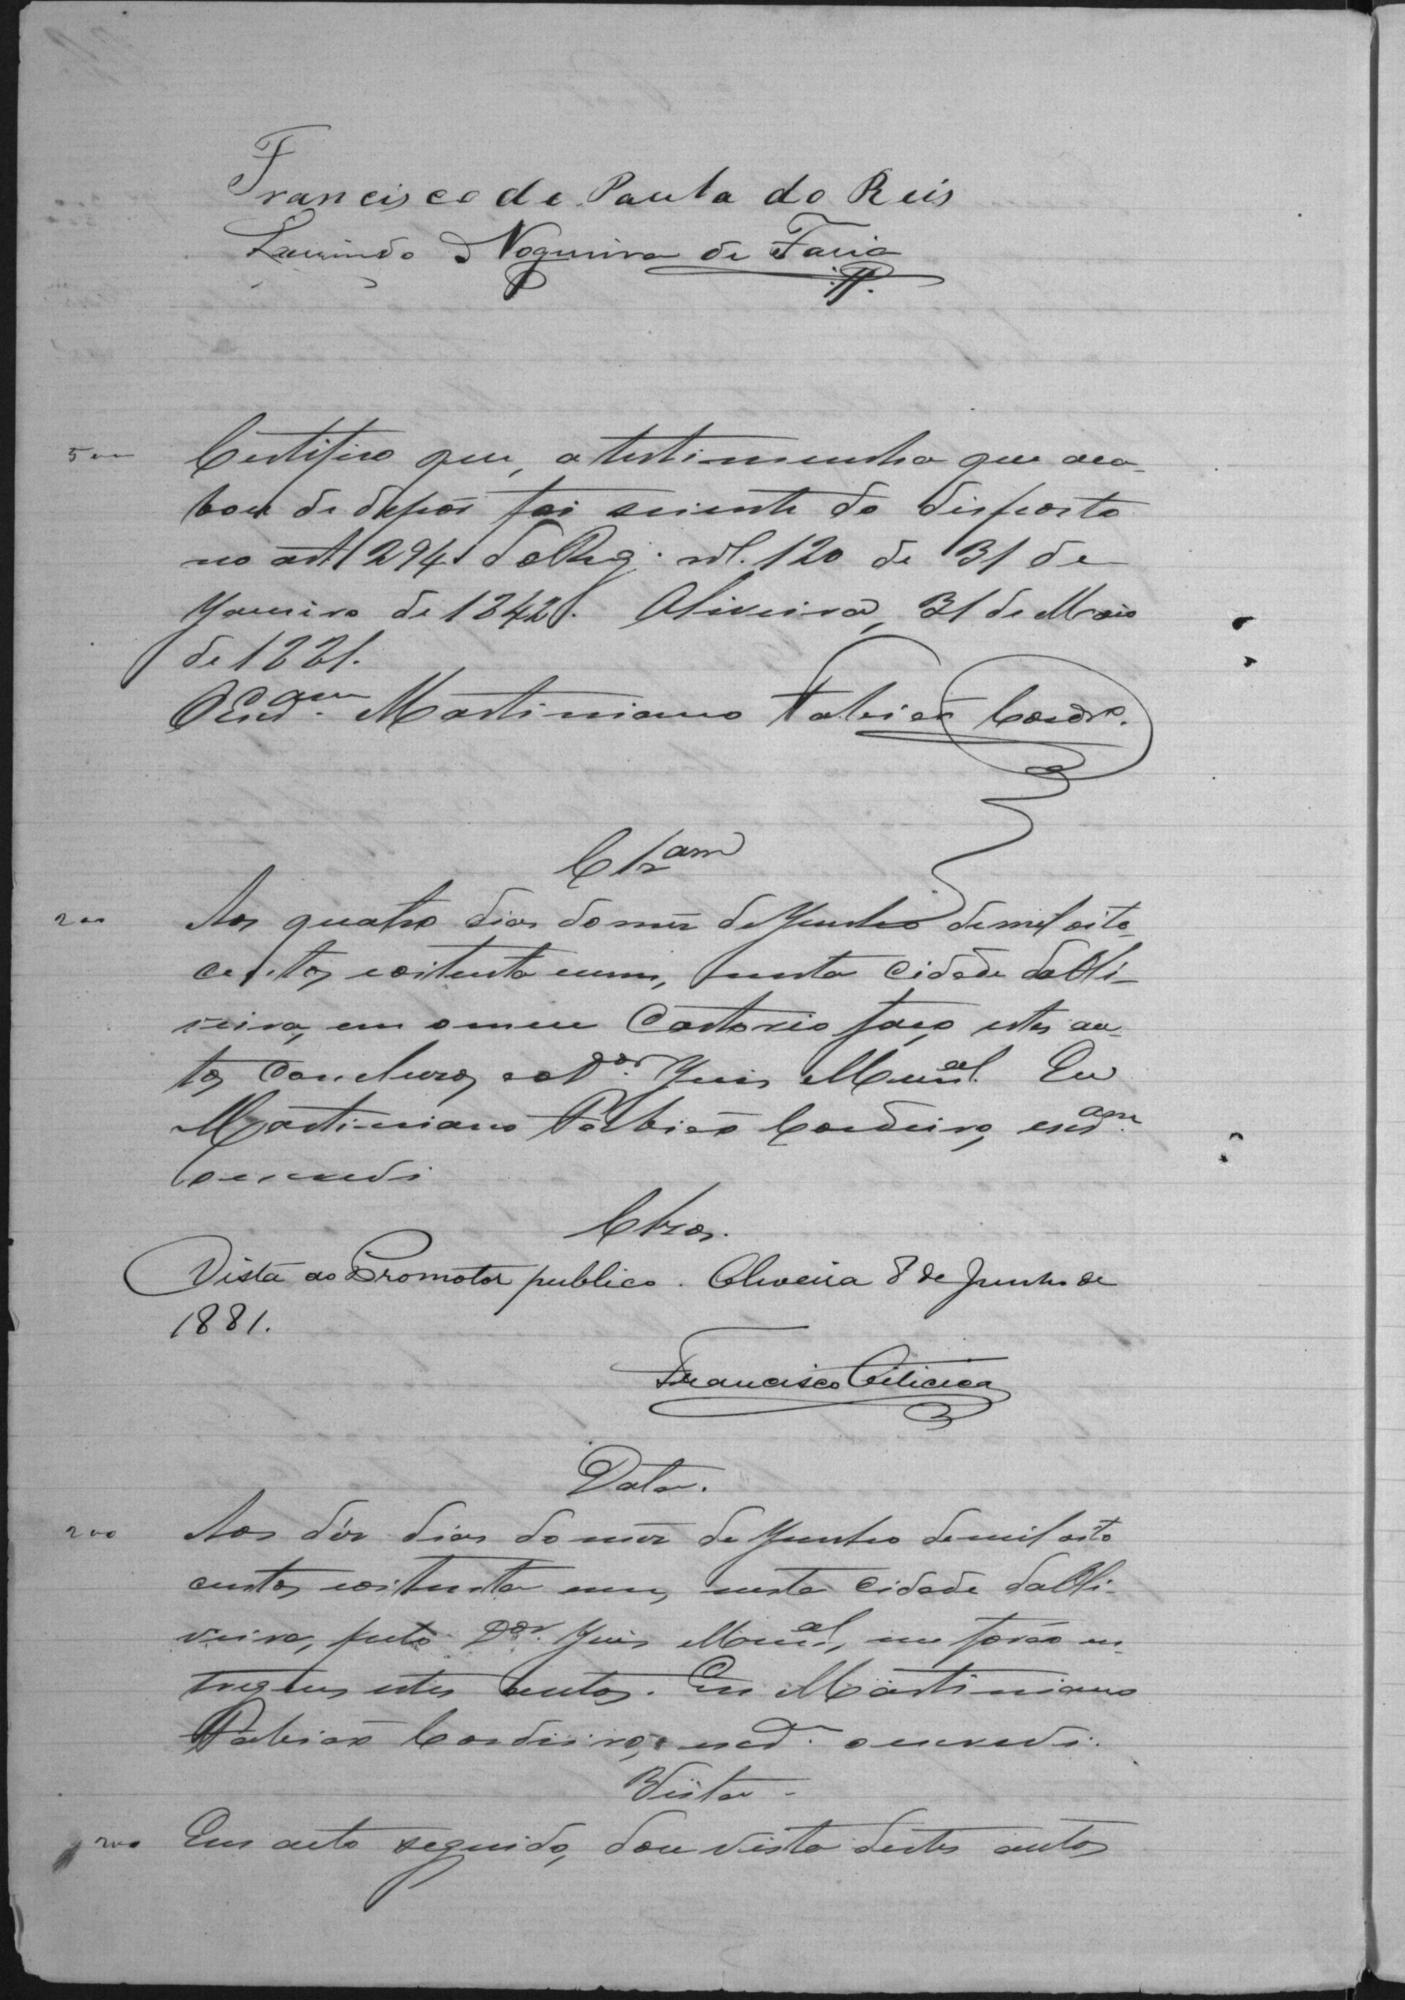 Francisco de Paula do Reis
Laurindo Nogueira de Faria
500 Certifico que, a testimunha que aca-
bou de depôr foi sciente do disposto
no art 294 do Reg. nº. 120 de 31 de
Janeiro de 1842. Oliveira, 31 de Maio
de 1881.
O Escr.am Martiniano Fabião Cordro.
Clzam
200 Aos quatro dias do mez de Junho de mil oito-
centos e oitenta e um, nesta cidade da Oli-
veira, em o meu Cartorio faço estes au-
tos concluzos ao Dor. Juiz Munal. Eu
Martiniano Fabião Cordeiro, escram.
o escrevi
Clzos.
Vista ao Promotor publico. Oliveira 8 de Junho de
1881.
Francisco
Data.
200 Aos déz dias do mez de Junho de mil oito
centos e oitenta e um, nesta cidade da Oli-
veira, pelo Dor. Juiz Munal, me forão en-
tregues estes autos. Eu Martiniano
Fabião Cordeiro, escram. o escrevi.
Vista.
200 Em acto seguido, dou vista destes autos